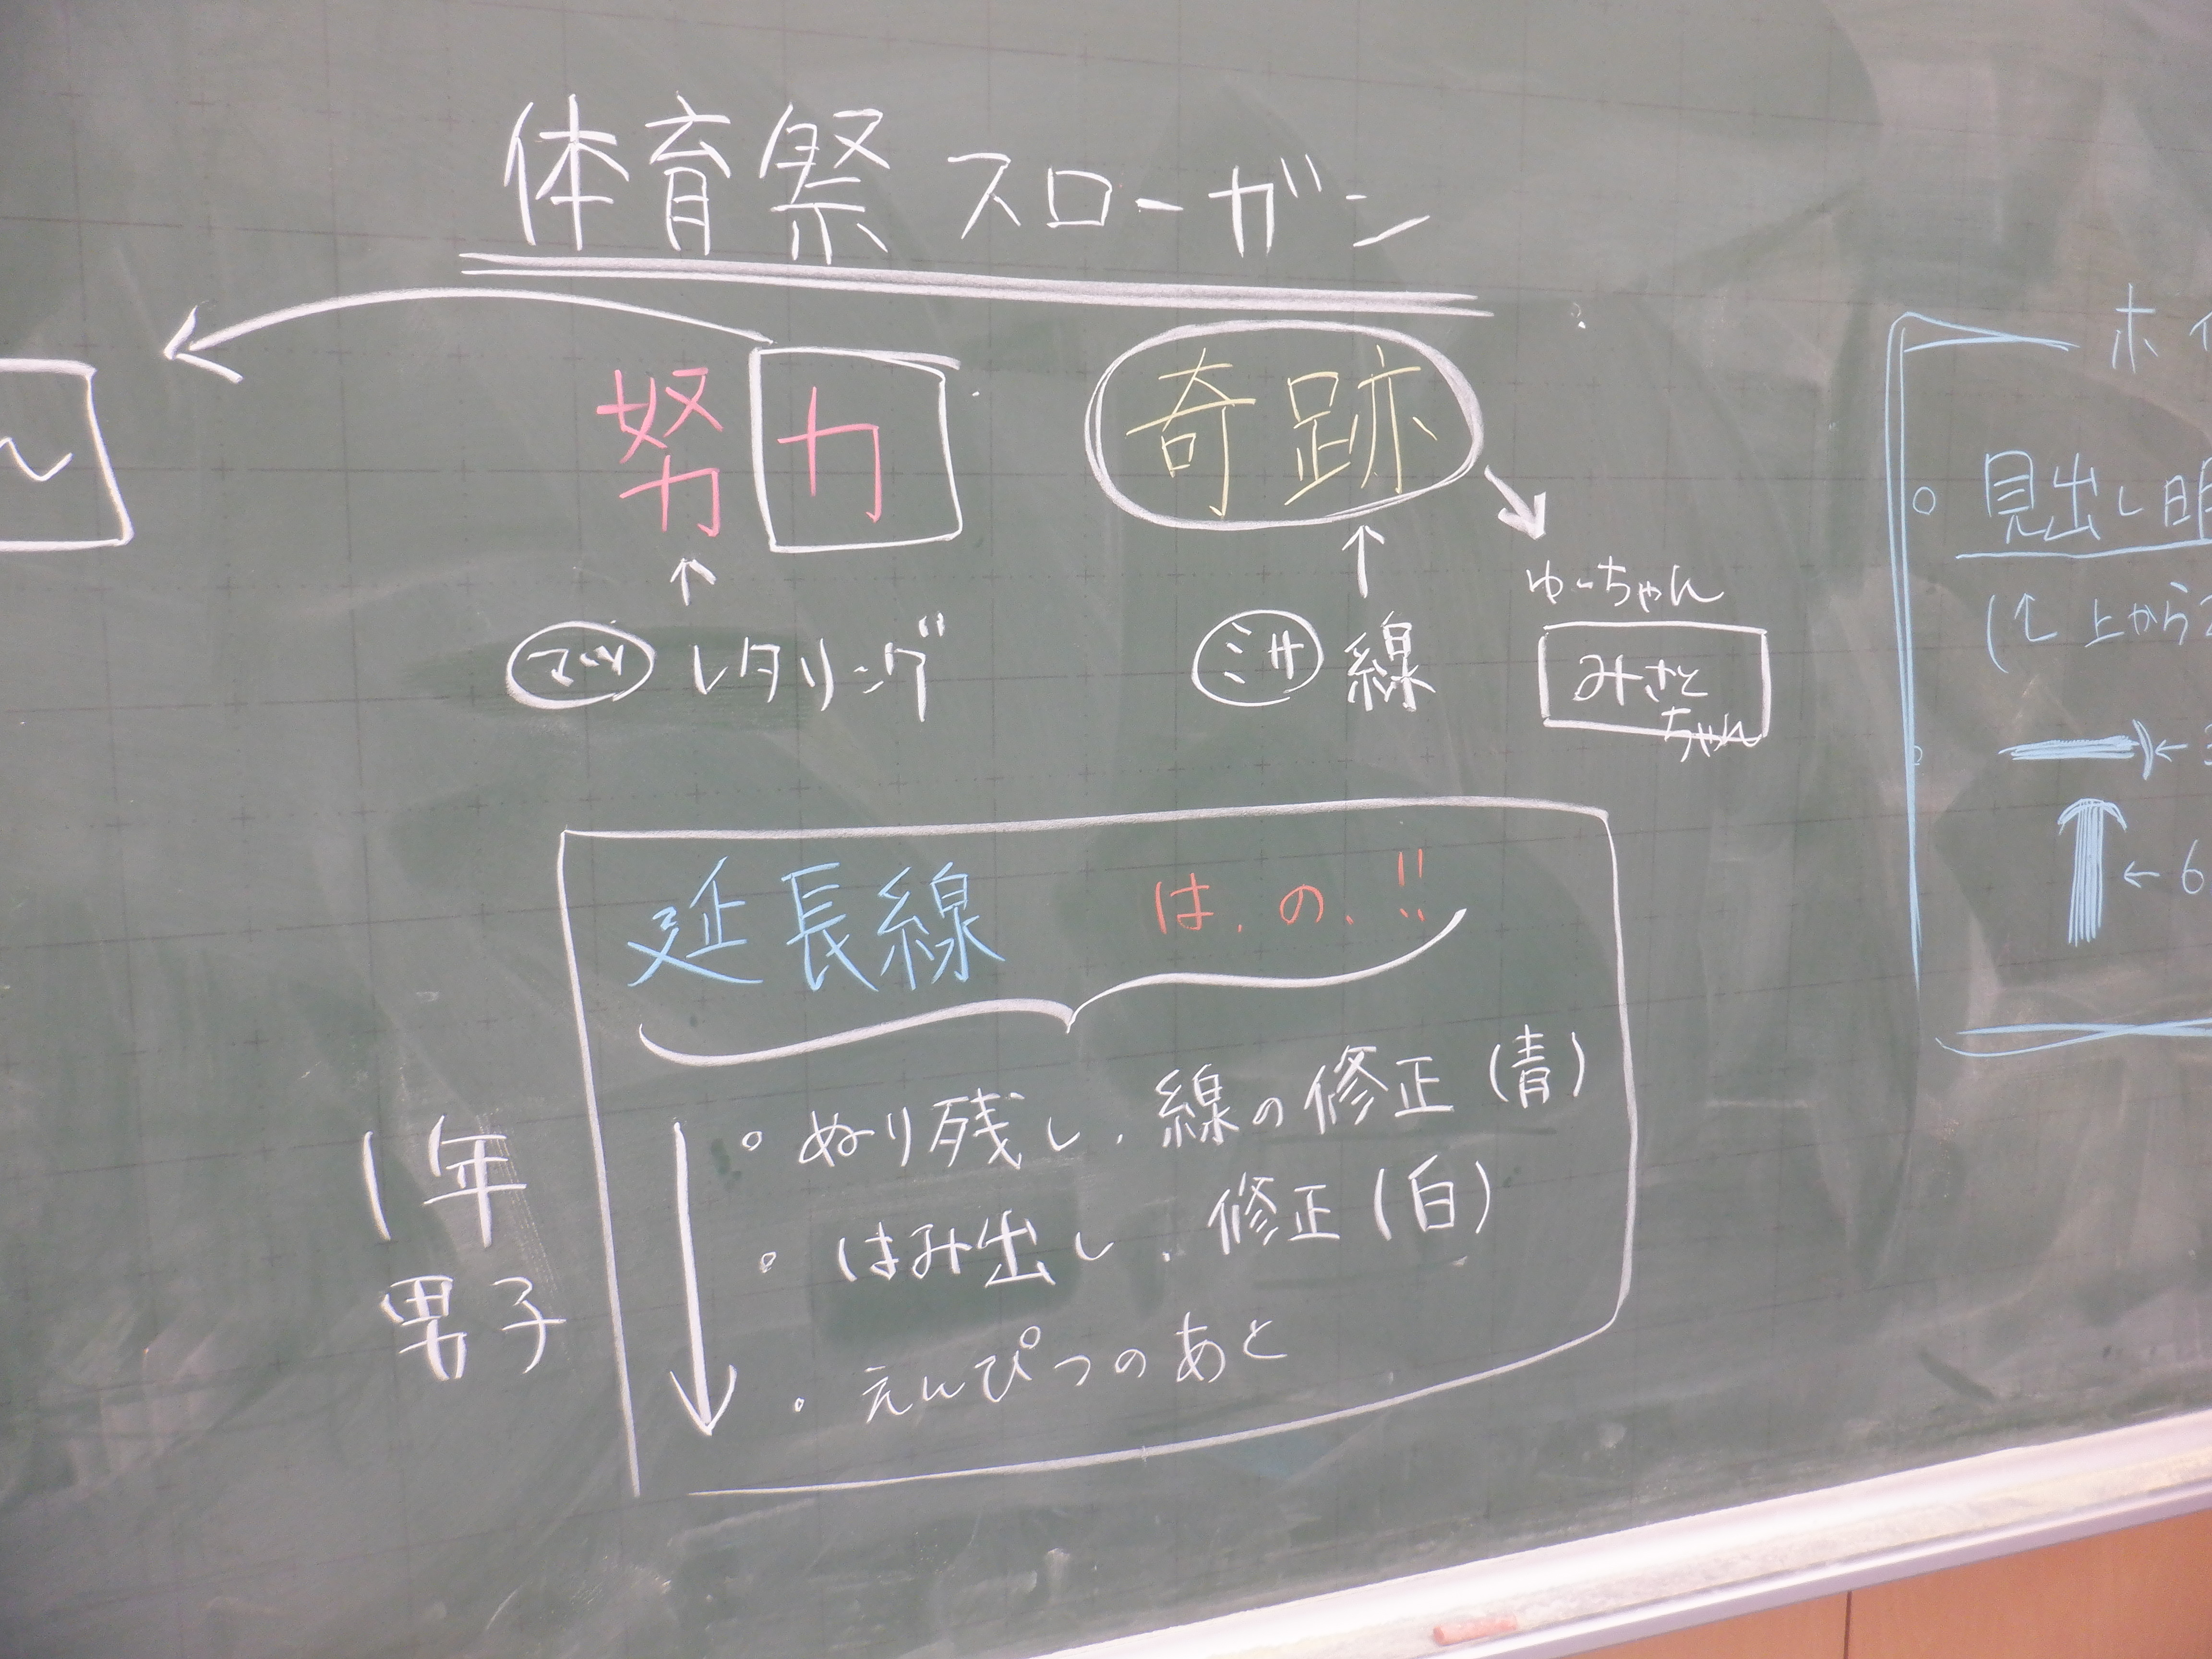 体育祭スローガン
努力 奇跡
マツ レタリング
ミサ 線
ゆーちゃん
みさと
ちゃん
延長線 は.の.!!
1年
男子
。ぬり残し.線の修正(青)
。はみ出し.修正(白)
。えんぴつのあと
ホ
。見出し
(↑上から
←6